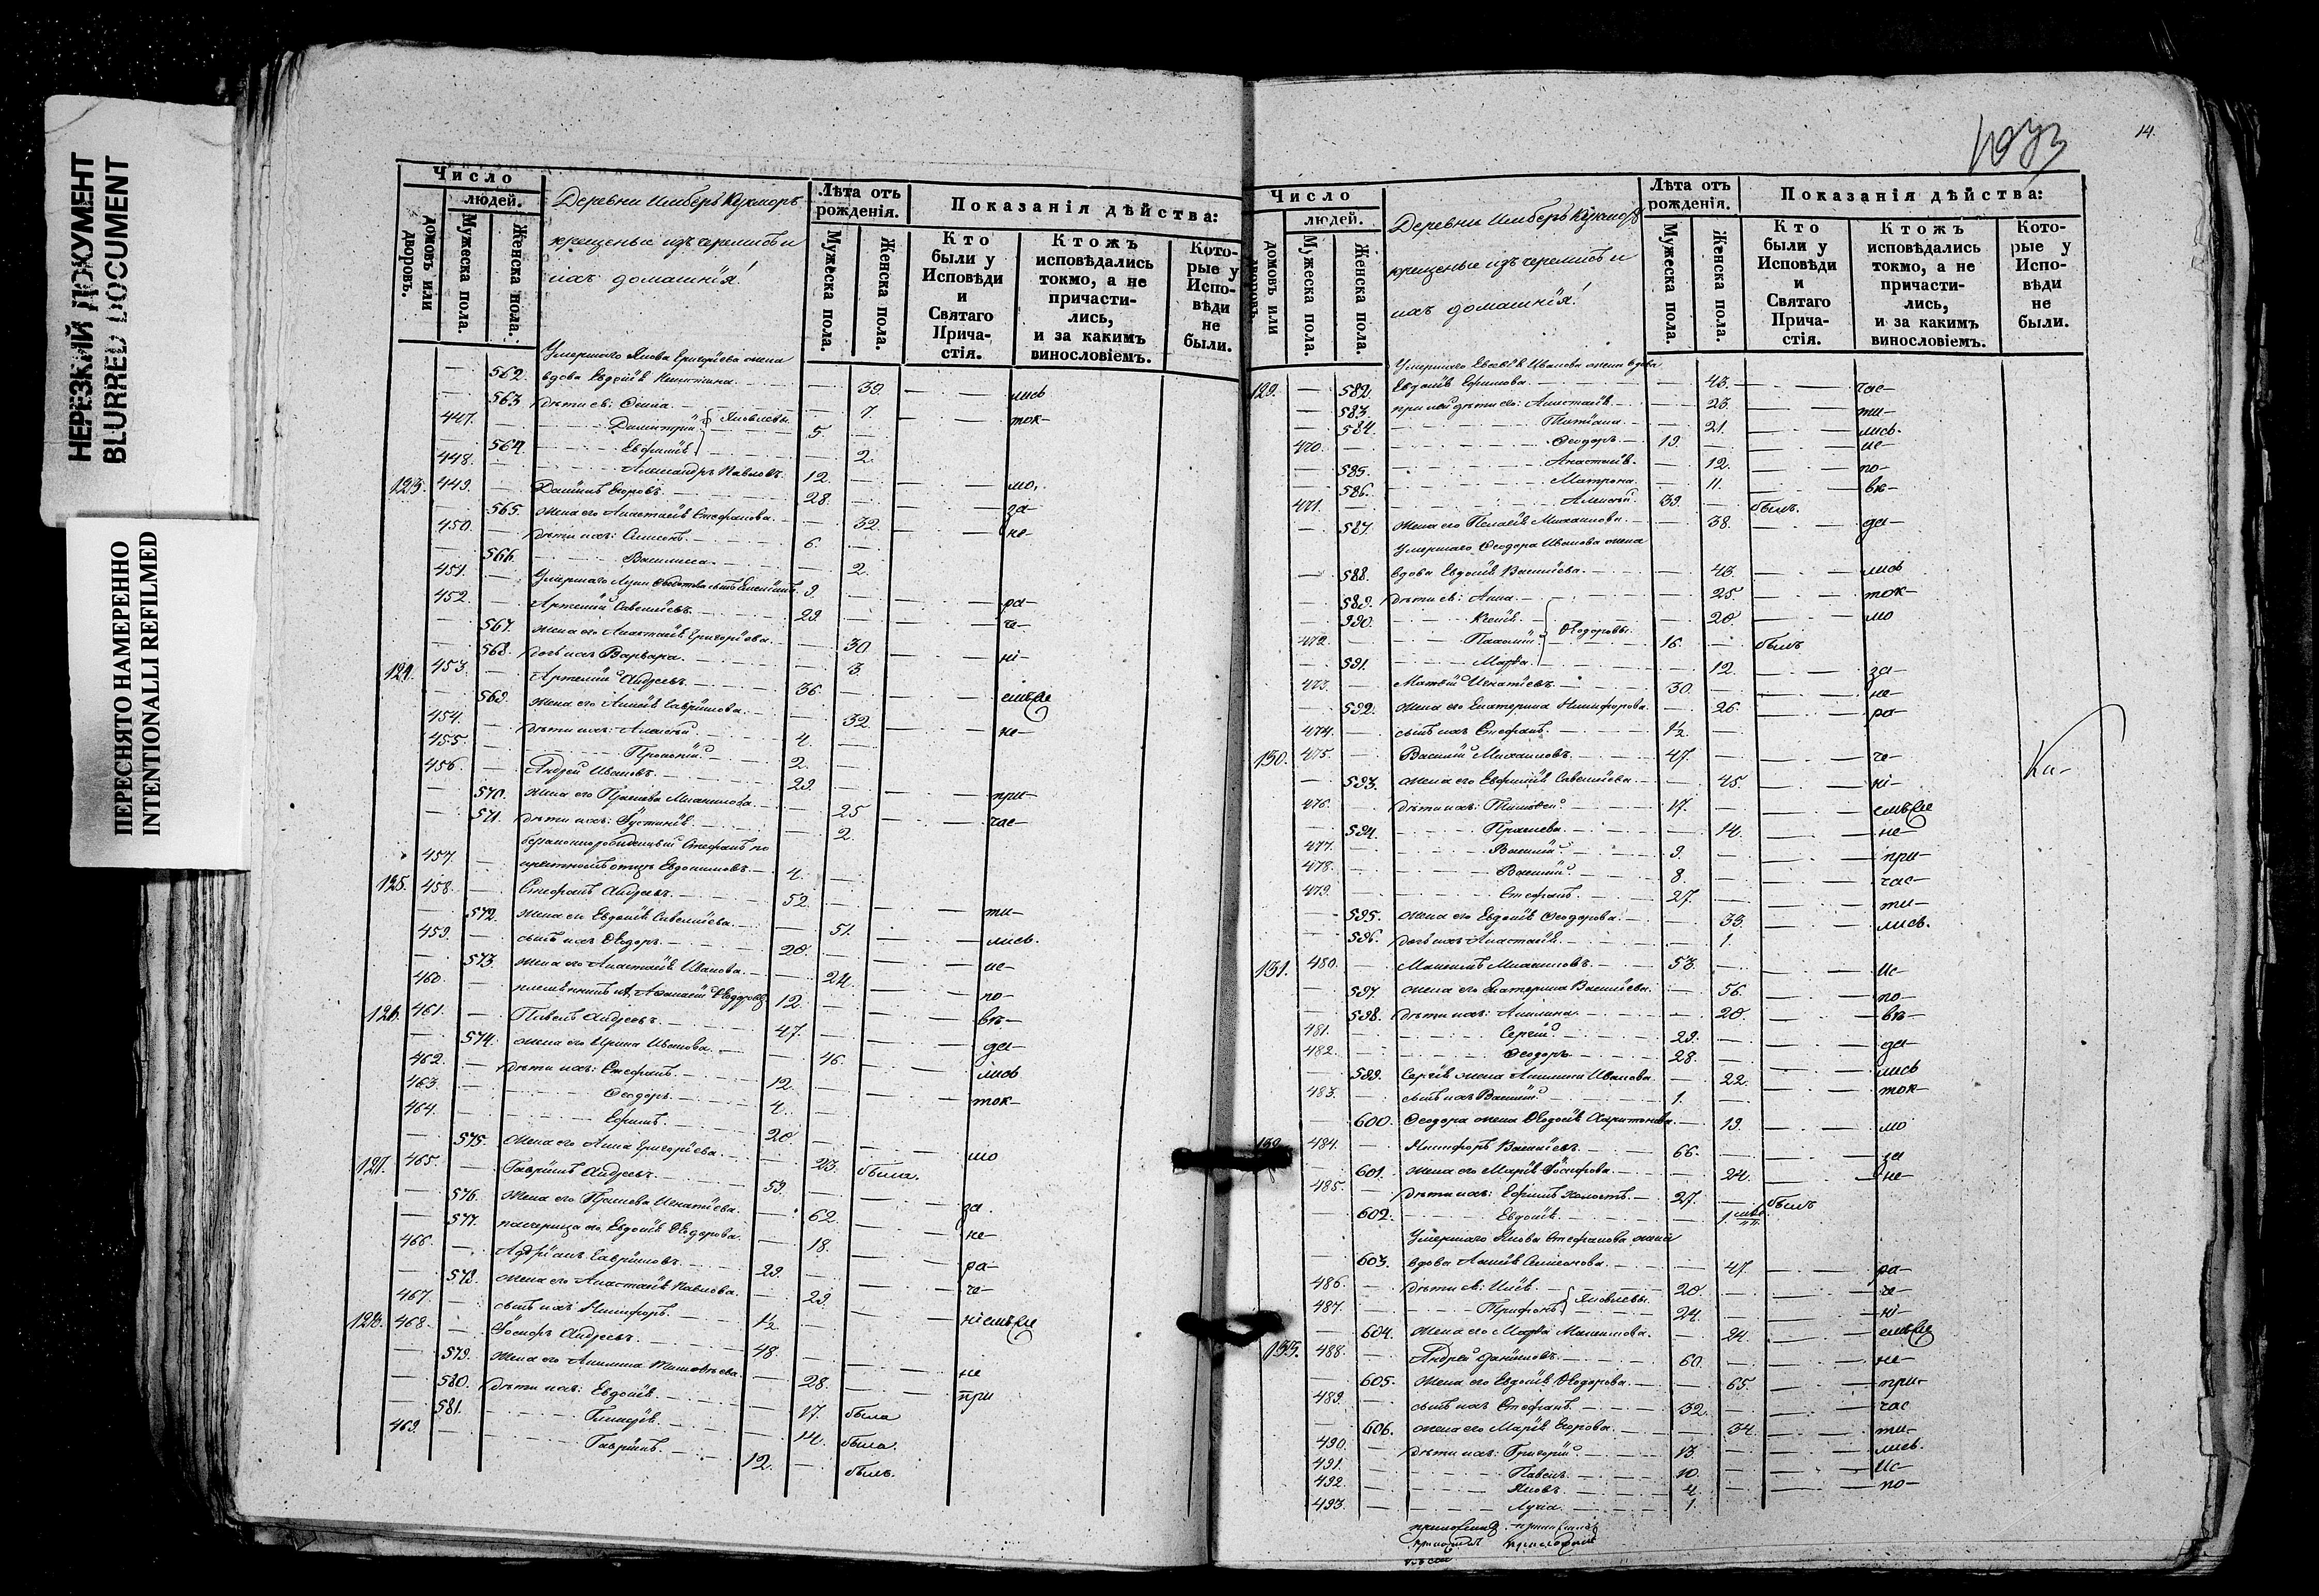 НЕРЕЗКИЙ ДОКУМЕНТ
BLURRED DOCUMENT
ПЕРЕСНЯТО НАМЕРЕННО
INTENTIONALLI REFILMED
Число
людей.
домовъ или дворовъ.
Мужеска пола.
Женска пола.
Деревни Имберъ Кужморъ
крещеные изъ черемисъ и
ихъ домашнія!
Лѣта отъ рожденія.
Мужеска пола.
Женска пола.
Показанія дѣйства:
Кто были у Исповѣди и Святаго Прича-стія.
Ктожъ исповѣдались токмо, а не причасти-лись, и за какимъ винословіемъ.
Кото-рые у Испо-вѣди не были.
Умершаго Якова Григорьева жена
562. вдова Евдокія 39. лись
563 дѣти ея: 7. ток-
447. Димитрій Яковлевы 5.
564. Евфимія 2.
448. Александръ Павловъ. 12.
123. 449. Даніилъ Егоровъ 28. мо,
565. жена его Анастасія Стефанова. 32. за-
450. дѣти ихъ: Симеонъ. 6. не-
566. Василиса. 2.
451. Умершаго 9.
452. Артемій Савельевъ. 29. ра-
567. жена его Анастасія Григорьева. 30. че-
568. дочь ихъ Варвара. 3. ні-
124. 453. Артемій Андреевъ. 36.
569. жена его Гаврилова. 32. емъ
454. дѣти ихъ: Алексѣй 4. не-
455. Прокопій. 2.
456. Андрей Ивановъ. 29.
570. жена его Параскева Михаилова. 25 при-
571. дѣти ихъ: Іустинія. 2. час-
457. Евдокимовъ. 4.
125. 458. Стефанъ Андреевъ. 52.
572. жена его Евдокія Савельева. 51. ти-
459. сынъ ихъ Ѳедоръ. 20. лись.
573. жена его Анастасія Иванова. 24. ис-
460. племянникъ Аѳанасій 12. по-
126. 461. Павелъ Андреевъ. 47. вѣ-
574. жена его Ирина Иванова. 46. да-
462. дѣти ихъ: Стефанъ. 12. лись
463. Ѳеодоръ. 4. ток-
464. Ефимъ. 20
575. жена его Анна Григорьева. 23. мо
127. 465. Гавріилъ Андреевъ. 59. была.
576. жена его Параскева Игнатьева. 62. за.
577. падчерица его Евдокія Ѳедорова. 18. не-
466. Адріанъ Гавриловъ. 29. ра-
578. жена его Анастасія Павлова. 29. че-
467. сынъ ихъ Никифоръ. 1½
128. 468. Іосифъ Андреевъ. 48. ніемъ
579. жена его Акилина Тимоѳеева. 28. не
580. дѣти ихъ: Евдокія. 17. была при
581. Гликерія. 14. была.
469. Гавріилъ. 12. былъ.
14.
Число
людей.
домовъ или дворовъ.
Мужеска пола.
Женска пола.
Деревни Имберъ Кужморъ
крещеные изъ черемисъ и
ихъ домашнія!
Лѣта отъ рожденія.
Мужеска пола.
Женска пола.
Показанія дѣйства:
Кто были у Исповѣди и Святаго Прича-стія.
Ктожъ исповѣдались токмо, а не причасти-лись, и за какимъ винословіемъ.
Кото-рые у Испо-вѣди не были.
Умершаго Иванова жена вдова
129. 582. Евдокія Ефимова. 43. час-
583. при ней дѣти его: Анастасія 23. ти-
584. Татіана. 21. лись.
470. Ѳеодоръ. 19. ис-
585. Анастасія. 12. по-
586. Матрона. 11. вѣ-
471. Алексѣй. 39. былъ.
587. жена его Пелагія Михаилова. 38. да-
Умершаго Ѳеодора Иванова жена
588. вдова Евдокія Васильева. 43. лись
589. дѣти ея: Анна. 25. ток-
590. Ксенія. Ѳедоровы. 20 мо
472. Пахомій 16. былъ
591. Марѳа. 12. за-
473. Матвѣй Игнатьевъ. 30. не-
592. жена его Екатерина Никифорова. 26. ра-
474. сынъ ихъ Стефанъ. 1½
130. 475. Василій Михаиловъ. 47. че-
593. жена его Евфимія Савельева. 45. ні-
476. дѣти ихъ: Тимоѳей 17. емъ
594. Параскева. 14. не-
477. Василій 9. при-
478. Василій 8. час-
479. Стефанъ. 27. ти-
595. жена его Евдокія Ѳеодорова. 33. лись.
596. дочь ихъ Анастасія. 1.
131. 480. Максимъ Михаиловъ. 53. ис-
597. жена его Екатерина Васильева. 56. по-
598. дѣти ихъ: Акилина. 20. вѣ-
481. Сергій 29. да-
482. Ѳеодоръ. 28. лись
599. Сергія жена Акилина Иванова. 22. ток-
483. сынъ ихъ Василій. 1.
600. Ѳеодора жена Ѳеодосія Харитонова. 19. мо
132. 484. Никифоръ Васильевъ. 66. за
601. жена его Марія Іосифова. 24. не-
485. дѣти ихъ: Ефимъ холостъ. 27. былъ
602. Евдокія 1.
Умершаго Якова Стефанова жена
603. вдова Симеонова. 47. ра-
486. дѣти ея: Илія Яковлевы. 20. че-
487. Трифонъ 24. ні-
604. жена его Марѳа Максимова. 24. емъ
133. 488. Андрей Даниловъ. 60. не-
605. жена его Евдокія Ѳедорова. 65. при-
489. сынъ ихъ Стефанъ. 32. час
606. жена его Марія Егорова. 34. ти-
490. дѣти ихъ: Григорій 13. лись.
491. Павелъ. 10. ис-
492. Яковъ. 4. по-
493. Лука. 1.